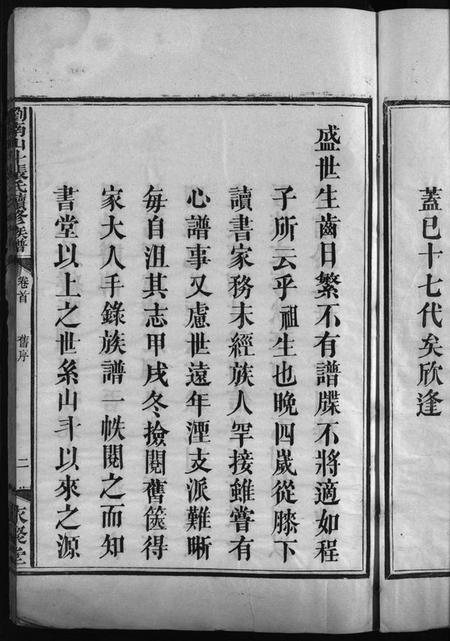 蓋已十七代矣欣逢
盛世生齒日繁不有譜牒不將適如程
子所云乎祖生也晚四歲從膝下
讀書家務未經族人罕接雖嘗有
心譜事又慮世遠年湮支派難晰
每自沮其志甲戌冬檢閱舊篋得
家大人手錄族譜一帙閱之而知
書堂以上之世系山斗以來之源
張氏續修族譜
卷首
舊序
二